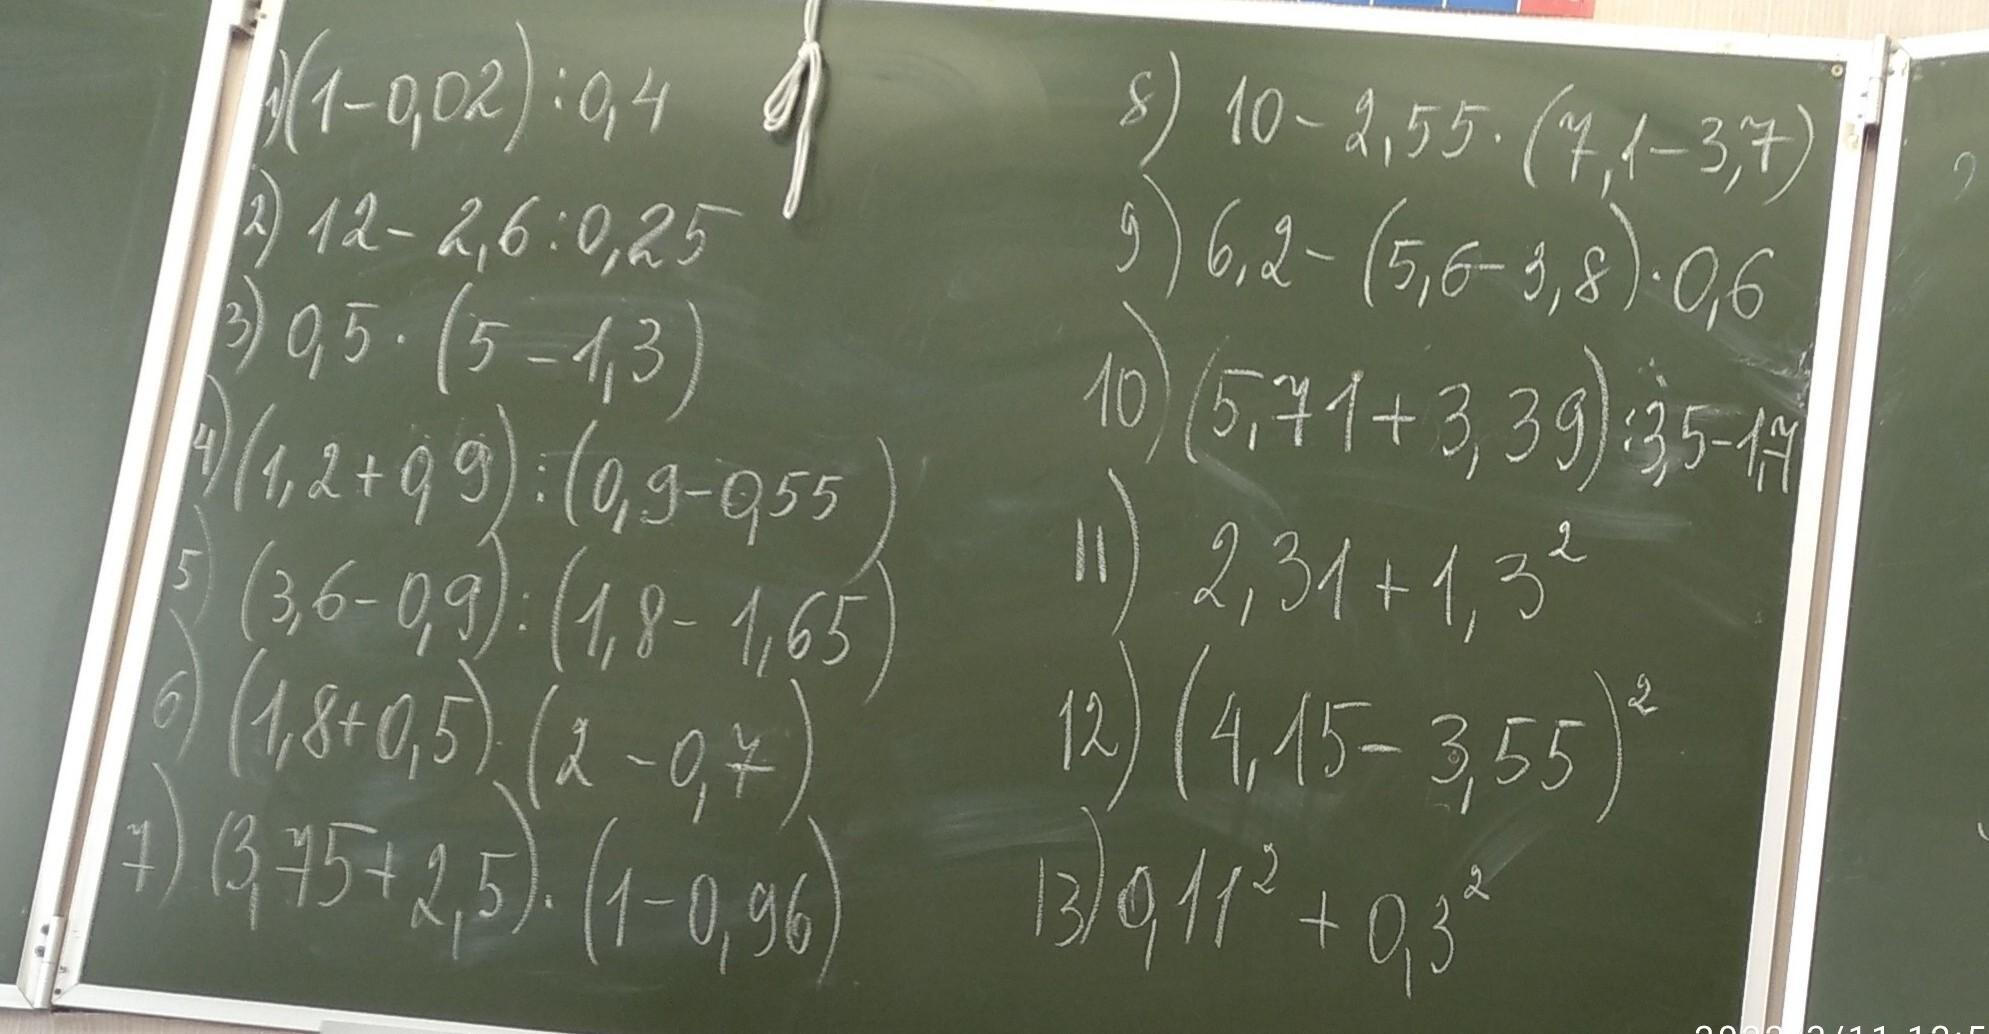 1) (1-0,02):0,4
2) 12-2,6:0,25
3) 0,5·(5-1,3)
4) (1,2+0,9):(0,9-0,55)
5) (3,6-0,9):(1,8-1,65)
6) (1,8+0,5)·(2-0,7)
7) (3,75+2,5)·(1-0,96)
8) 10-2,55·(7,1-3,7)
9) 6,2-(5,6-3,8)·0,6
10) (5,71+3,39):3,5-1,7
11) 2,31+1,3²
12) (4,15-3,55)²
13) 0,11²+0,3²